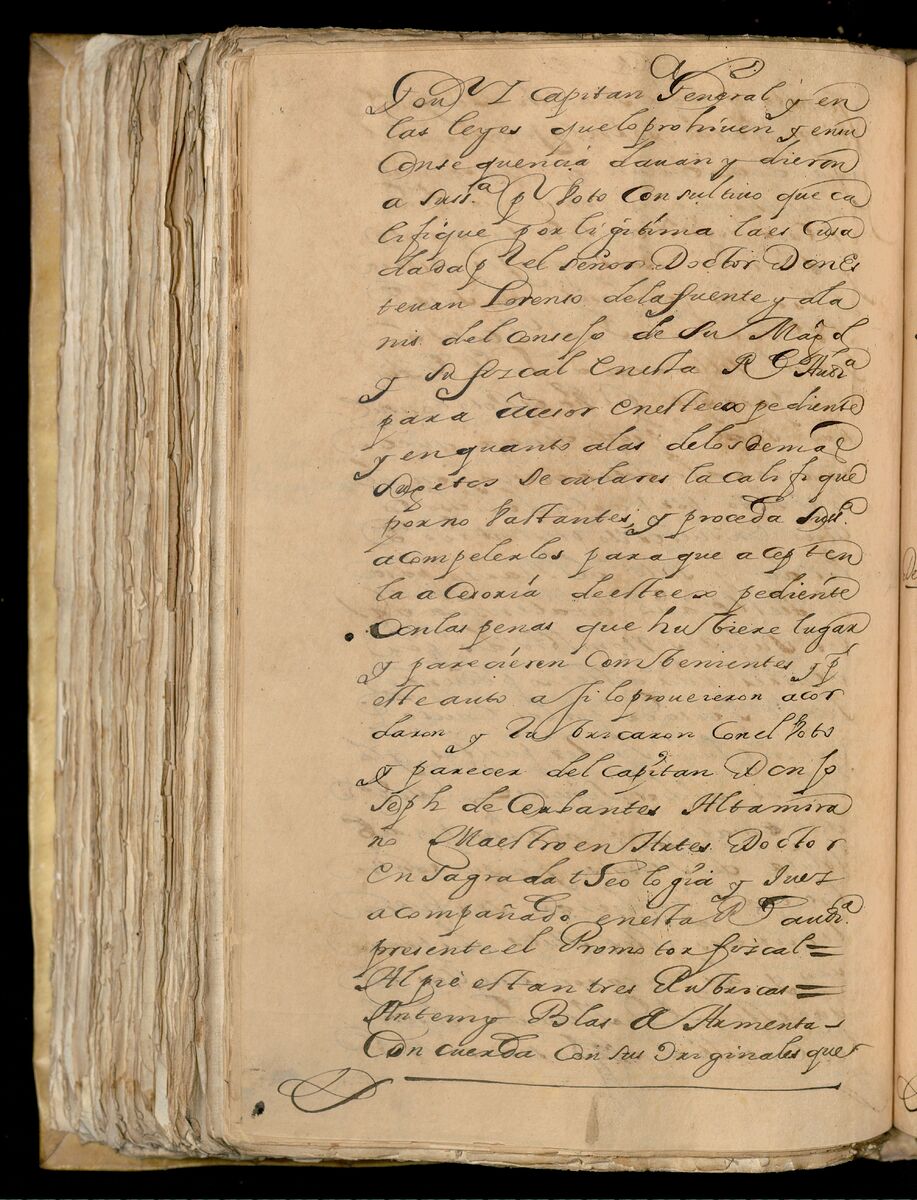 Gou.ᵒʳ Y Capitan General y en
las leyes que lo prohiuen y en su
Consequencia dauan y dieron
a su ss.ª p.ʳ Voto Consultiuo que ca
lifique por ligitima la escusa
dada p.ʳ el Señor Doctor Don Es
teuan Lorenso de la fuente y ala
nis del Consejo de Su Mag.d
y su fiscal en esta R.l Audi.ª
para acesor en este expediente
y en quanto a las de los demas
sugetos Seculares la califique
por no bastantes, y proceda Su ss.ª
a compelerlos para que acepten
la acesoria de este expediente
Con las penas que hubiere lugar
y parecieren Combenientes y p.ʳ
este auto asi lo proueieron acor
daron y Rubricaron Con el Voto
y parecer del Capitan Don Jo
seph de Cerbantes Altamira
no Maestro en Artes Doctor
en Sagrada tHeologia y Juez
acompañado en esta R.l audi.ª
presente el Promotor fiscal =
Al pie estan tres Rubricas =
Antemy Blas de Armenta -
Concuerda Con sus Originales que